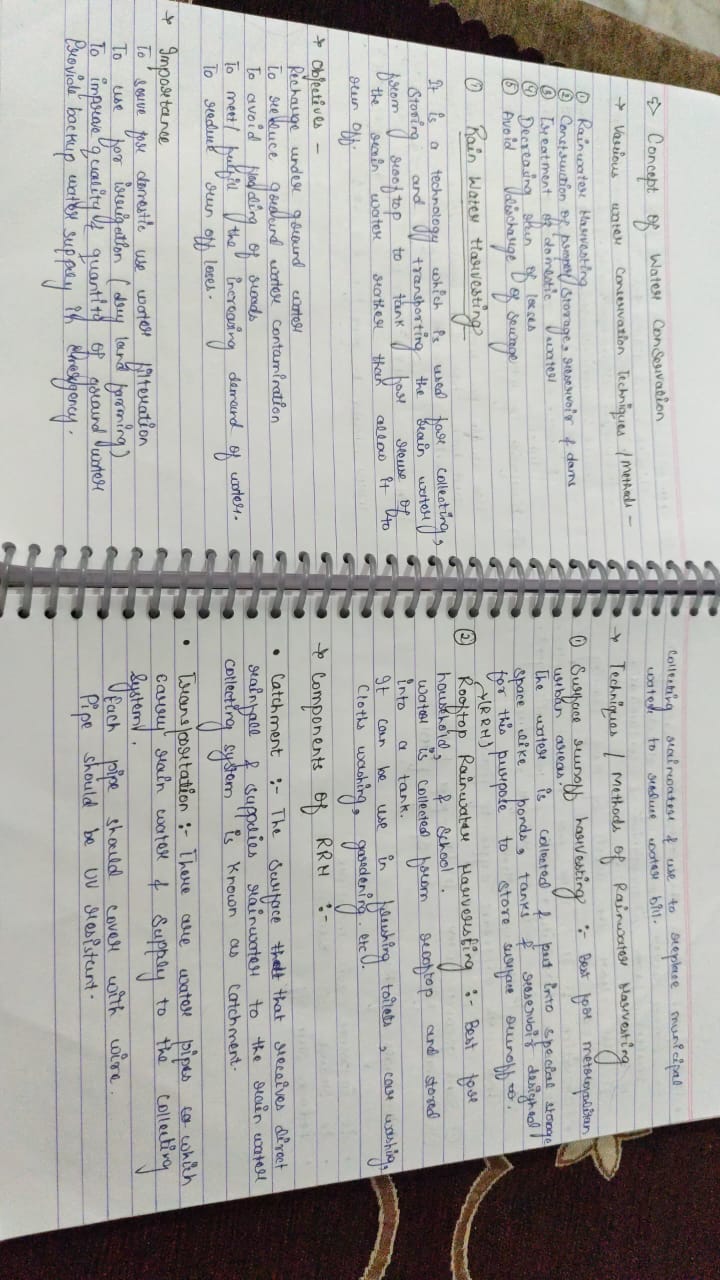 ⇒ Concept of Water Conservation
→ Various water Conservation Techniques / Methods -
① Rainwater Harvesting
② Construction of proper storage, reservoir & dams
③ Treatment of domestic water
④ Decreasing run of loses
⑤ Avoid discharge of sewage
① Rain Water Harvesting
It is a technology which is used for collecting,
Storing and transporting the rain water
from rooftop to tank for reuse of
the rain water rather than allow it to
run off.
→ Objectives -
Recharge under ground water
To reduce ground water contamination
To avoid flodding of roads
To meet/ fulfill the increasing demand of water.
To reduce run off loses.
→ Importance
To serve for domestic use water filteration
To use for irrigation (dry land farming)
To improve quality & quantity of ground water
Provide backup water supply in emergency.
Collecting rainwater & use to replace municipal
water to reduce water bill.
→ Techniques / Methods of Rainwater Harvesting
① Surface runoff harvesting :- Best for metropolitan
urban areas.
The water is collected & put into special storage
space like ponds, tanks & reservoir designed
for this purpose to store surface runoff
→(RRH)
② Rooftop Rainwater Harversting :- Best for
household, & School.
water is collected from rooftop and stored
into a tank.
It can be use in flushing toilets, car washing,
Cloths washing, gardening. etc.
→ Components of RRH :-
• Catchment :- The surface that that receives direct
rainfall & supplies rainwater to the rain water
collecting system is known as catchment.
• Transportation :- There are water pipes which
carry rain water & supply to the collecting
system.
Each pipe should cover with wire.
Pipe should be UV resistant.